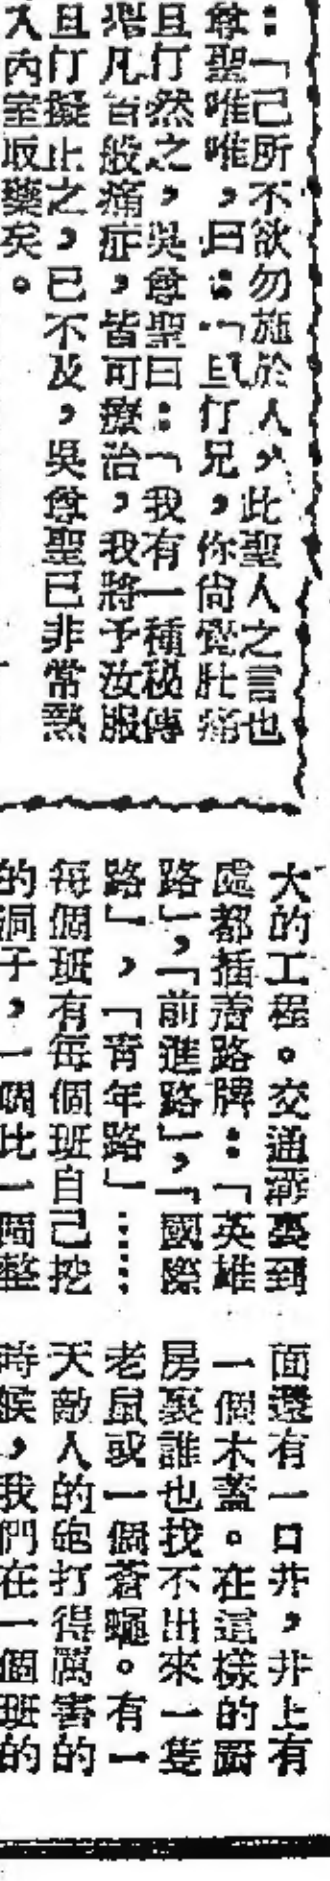 ：「己所不欲勿施於人，此聖人之言也
尊聖唯唯，曰：「且仃兄，你尙覺肚痛
且仃然之，吳尊聖曰：「我有一種秘傳
凡百般痛症，皆可療治，我將予汝服
且仃擬止之，已不及，吳尊聖已非常熱
內室取藥矣。
大的工程。交通溝裏到
處都插着路牌：「英雄
路」，「前進路」，「國際
路」，「靑年路」……
每個班有每個班自己挖
的洞子，一個比一個整
面還有一口井，井上有
一個木蓋。在這樣的廚
房裏誰也找不出來一隻
老鼠或一個蒼蠅。有一
天敵人的砲打得厲害的
時候，我們在一個班的